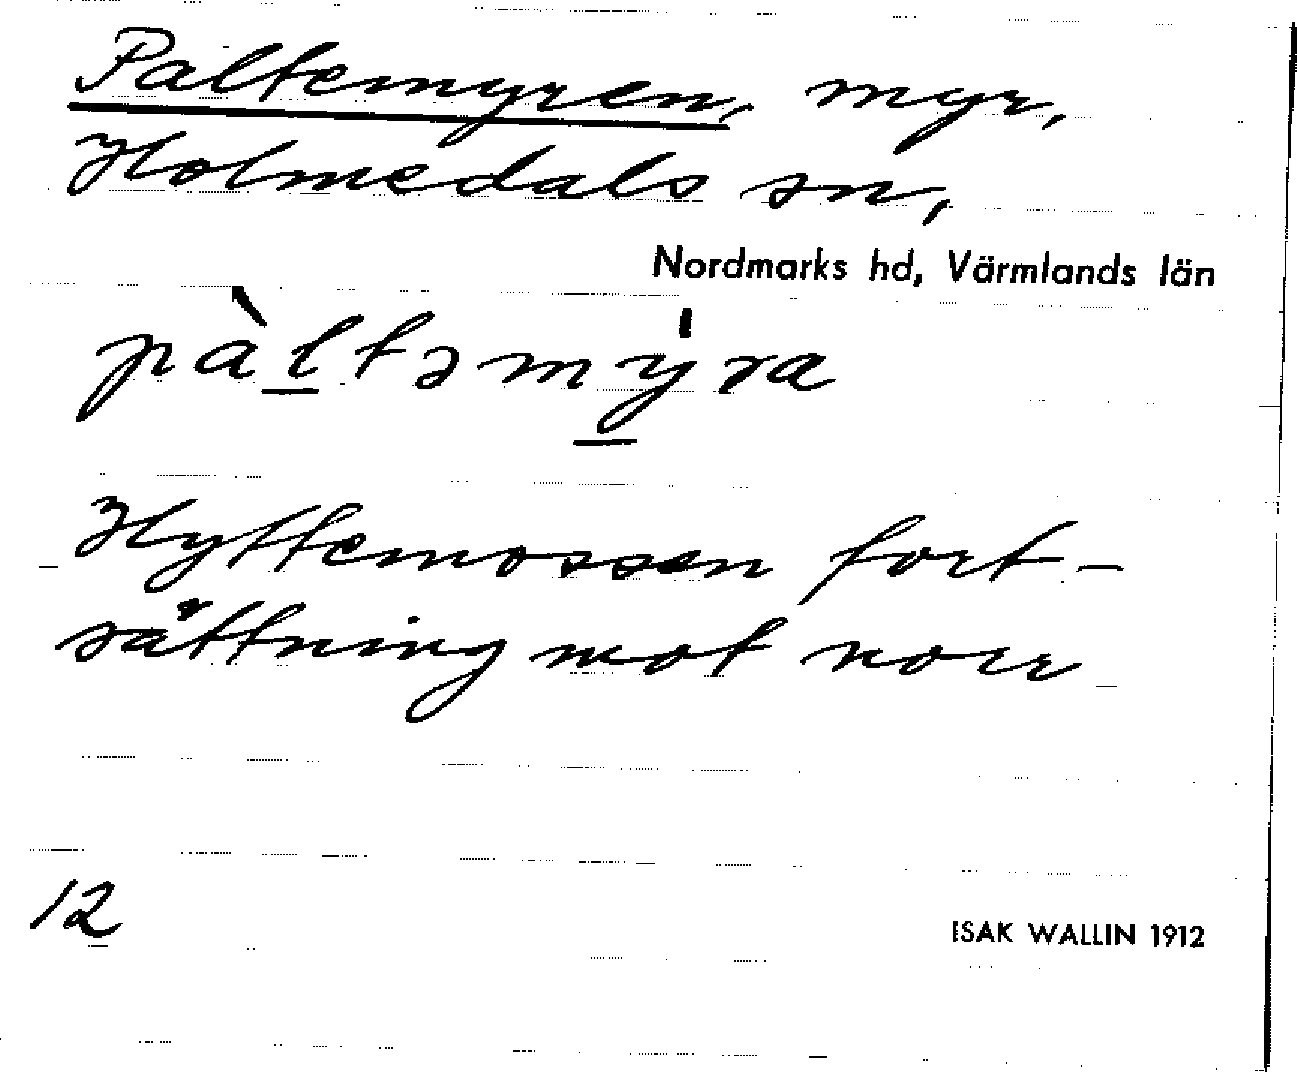 Paltemyren, myr,
Holmedals sn,
Nordmarks hd, Värmlands län
pàltəmýra
Hyttemossen fort-
sättning mot norr
12
ISAK WALLIN 1912